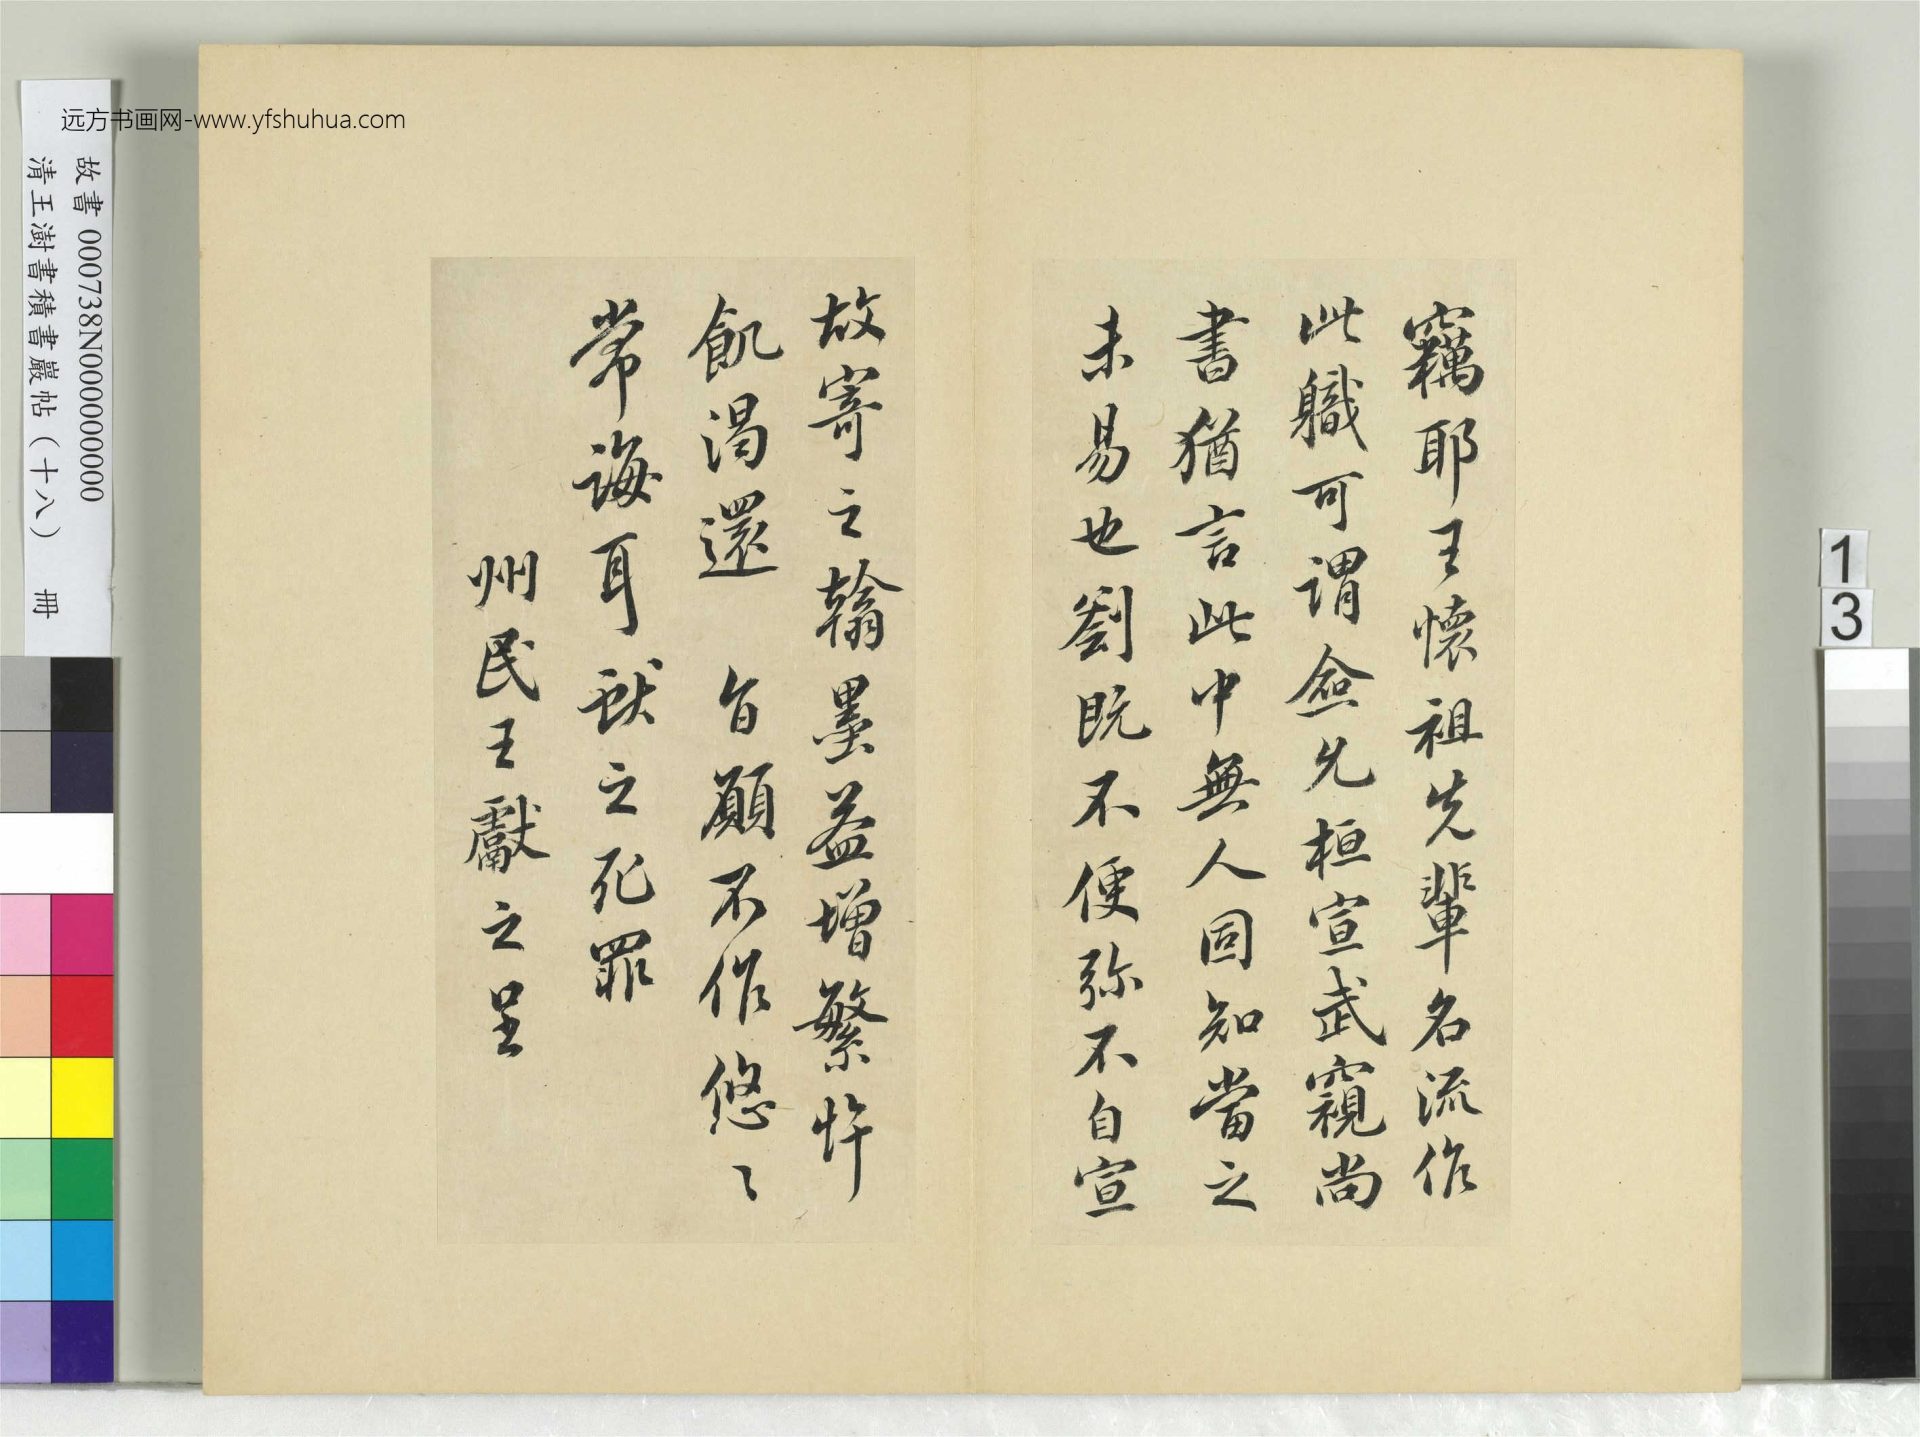 竊耶王懷祖先輩名流作
此職可謂僉允桓宣武窺尚
書猶言此中無人固知當之
未易也劉既不便弥不自宣
故寄之翰墨益增繁忤
飢渴還旨願不作悠〻
常誨耳獻之死罪
州民王獻之呈
远方书画网-www.yfshuhua.com
故書 000738N000000000
清王澍書積書巖帖(十八) 冊
1
3